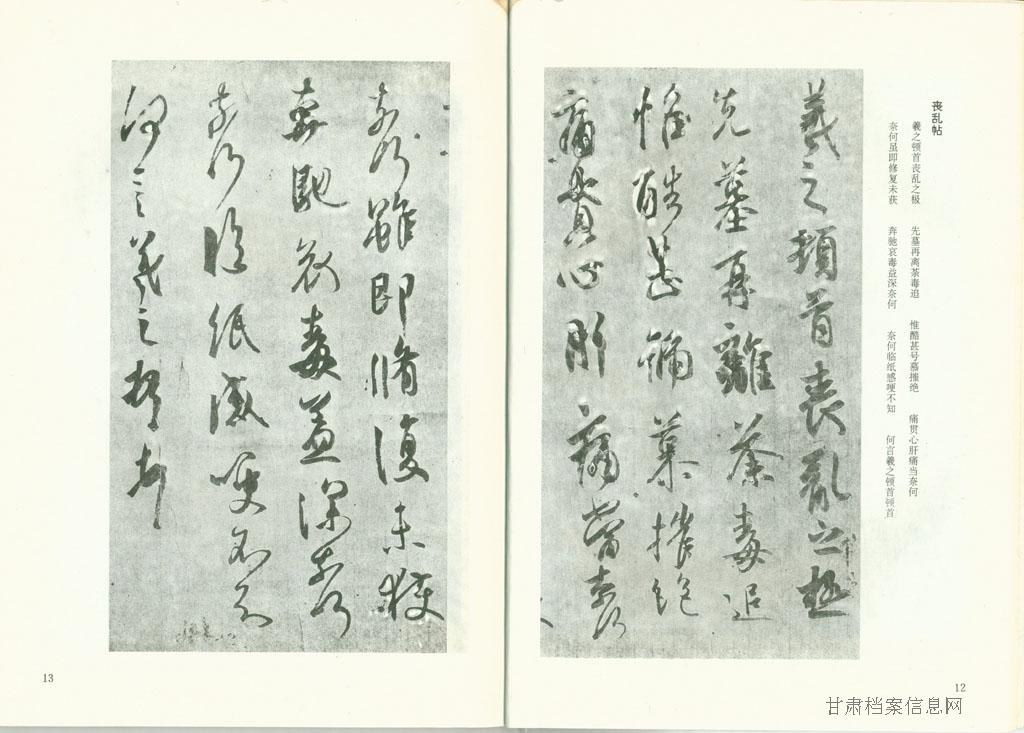 丧乱帖
羲之顿首丧乱之极 先墓再离荼毒追 惟酷甚号慕摧绝 痛贯心肝痛当奈何
奈何虽即修复未获 奔驰哀毒益深奈何 奈何临纸感哽不知 何言羲之顿首顿首
羲之頓首喪亂之極
先墓再離荼毒追
惟酷甚號慕摧絶
痛貫心肝痛當奈何
12
奈何雖即脩復未獲
奔馳哀毒益深奈何
奈何臨紙感哽不知
何言羲之頓首頓首
13
甘肃档案信息网